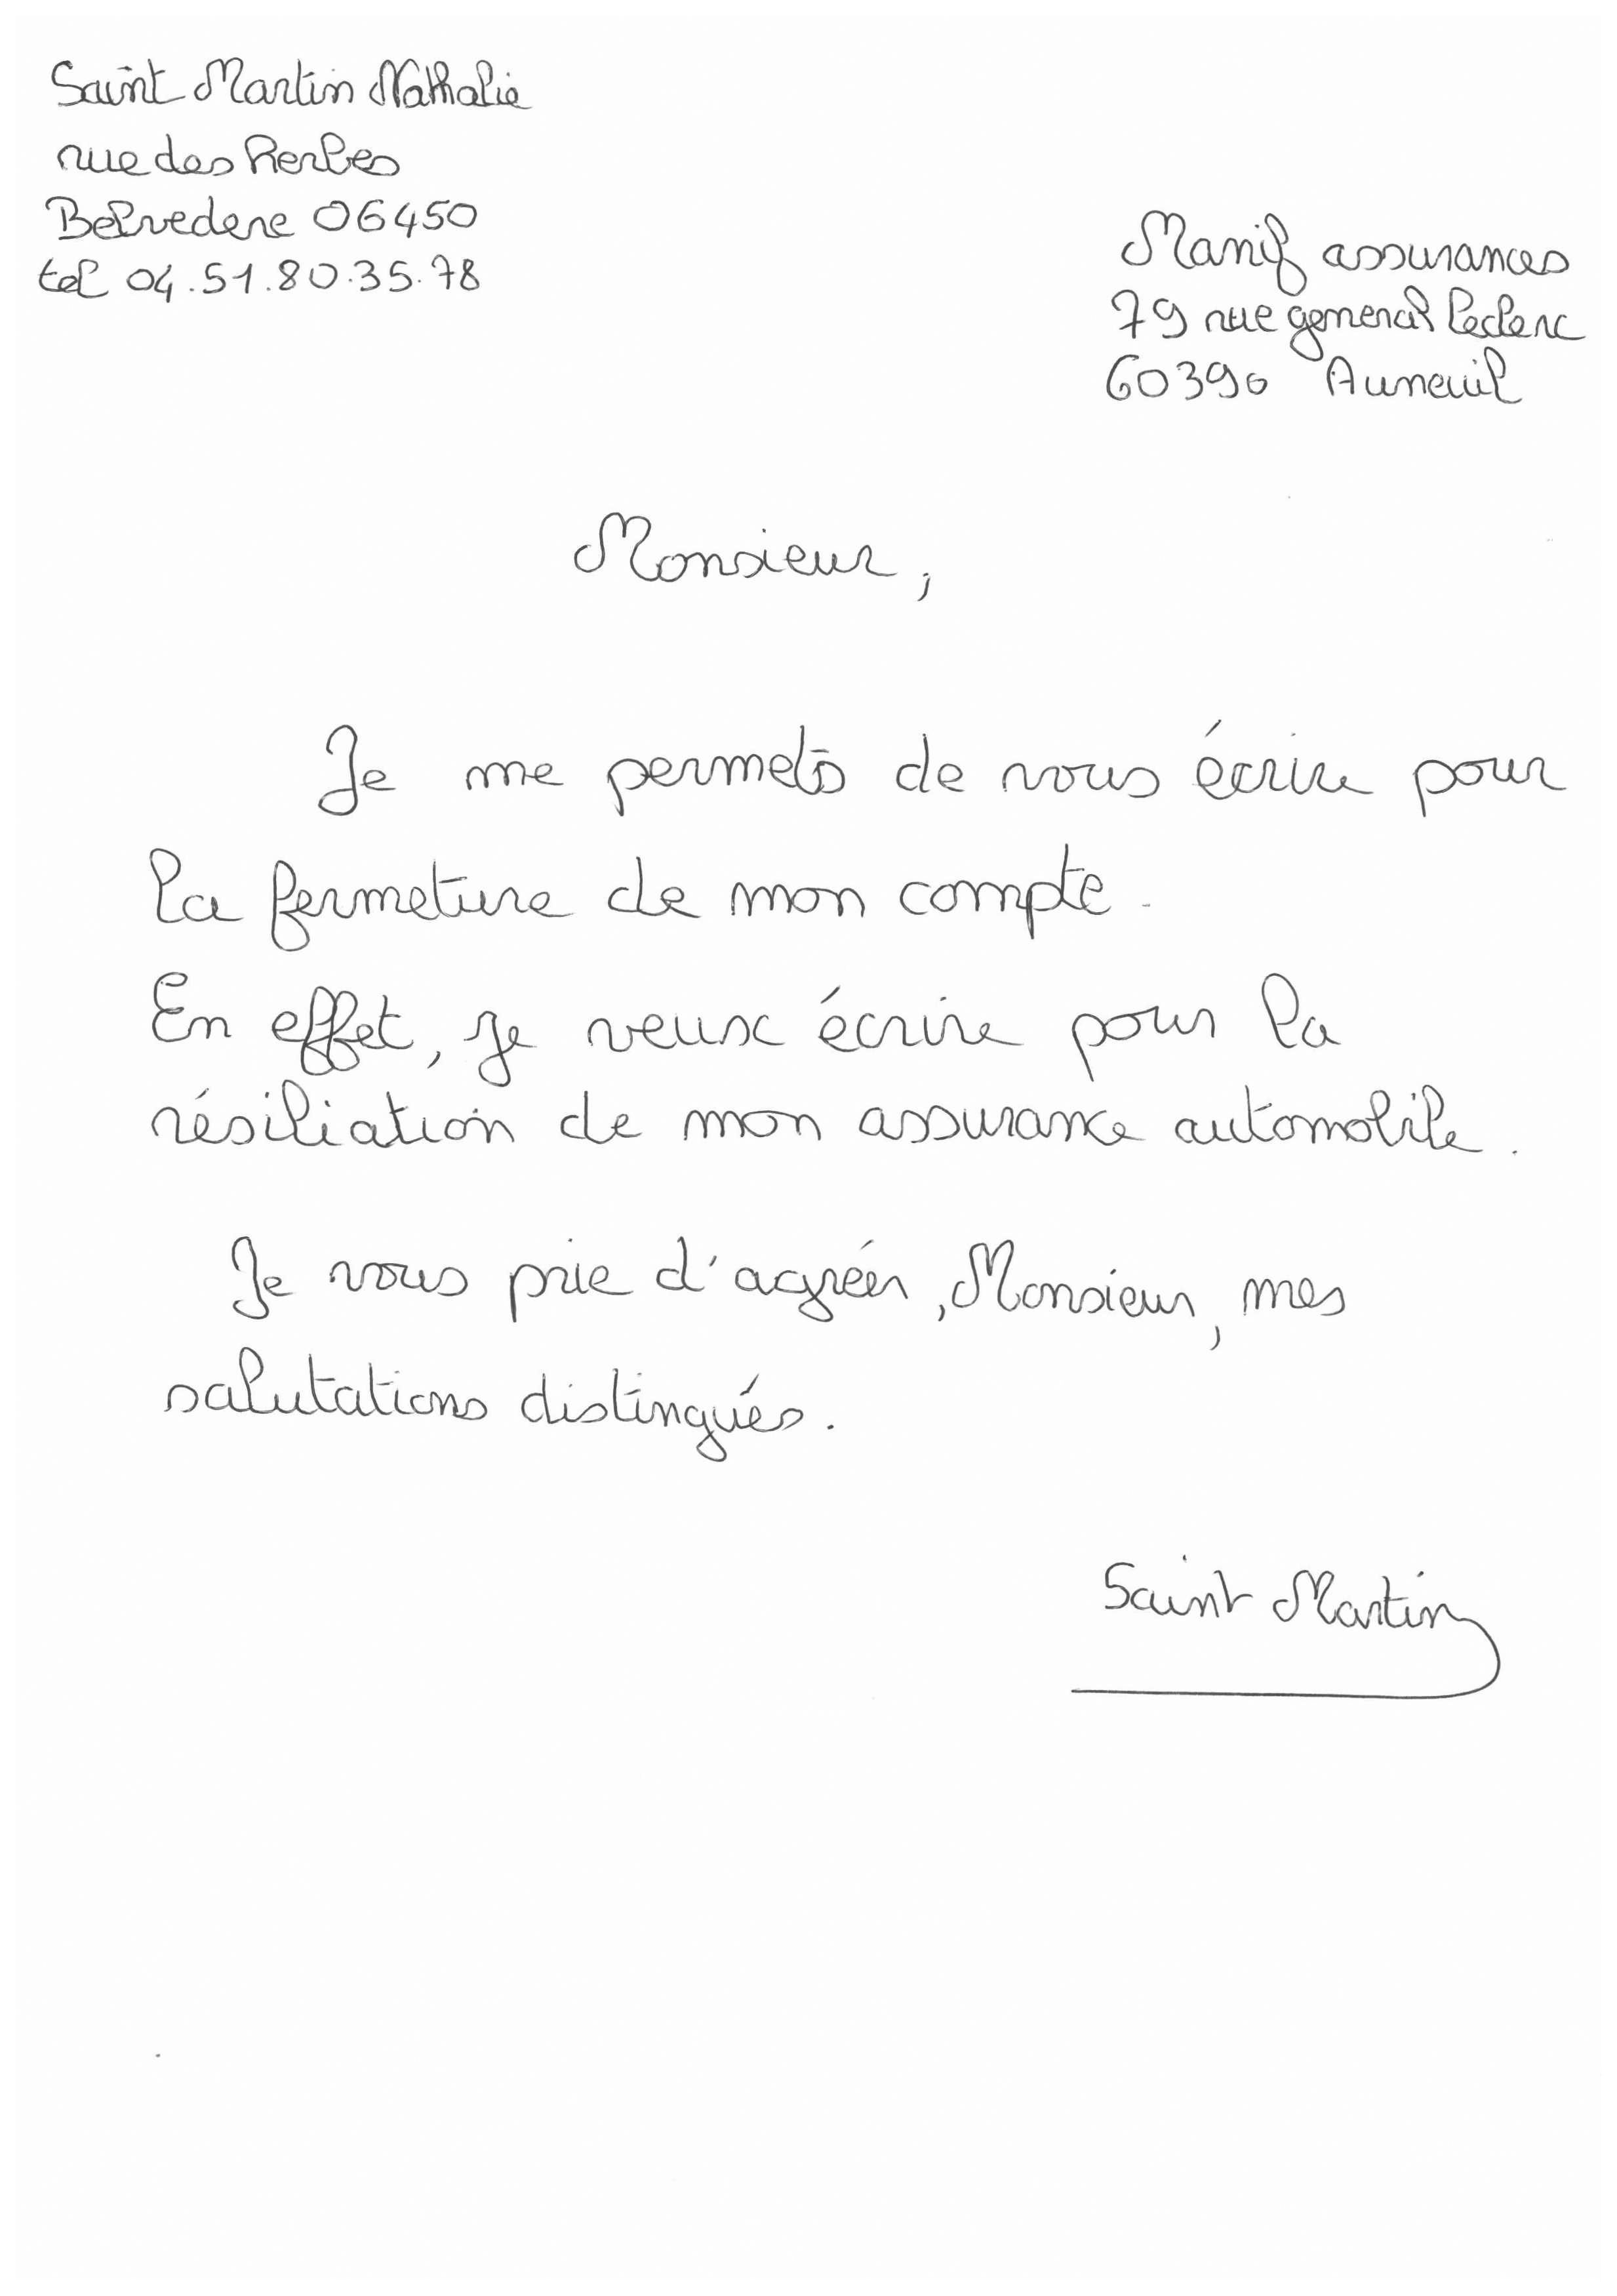 Saint Martin Nathalie
rue des Herbes
Belvedere 06450
tel 04.51.80.35.78
Manif assurances
79 rue general leclerc
60390 Auneuil
Monsieur,
Je me permets de vous écrire pour
la fermeture de mon compte.
En effet, je veux écrire pour la
résiliation de mon assurance automobile.
Je vous prie d'agréér, Monsieur, mes
salutations distingués.
Saint Martin